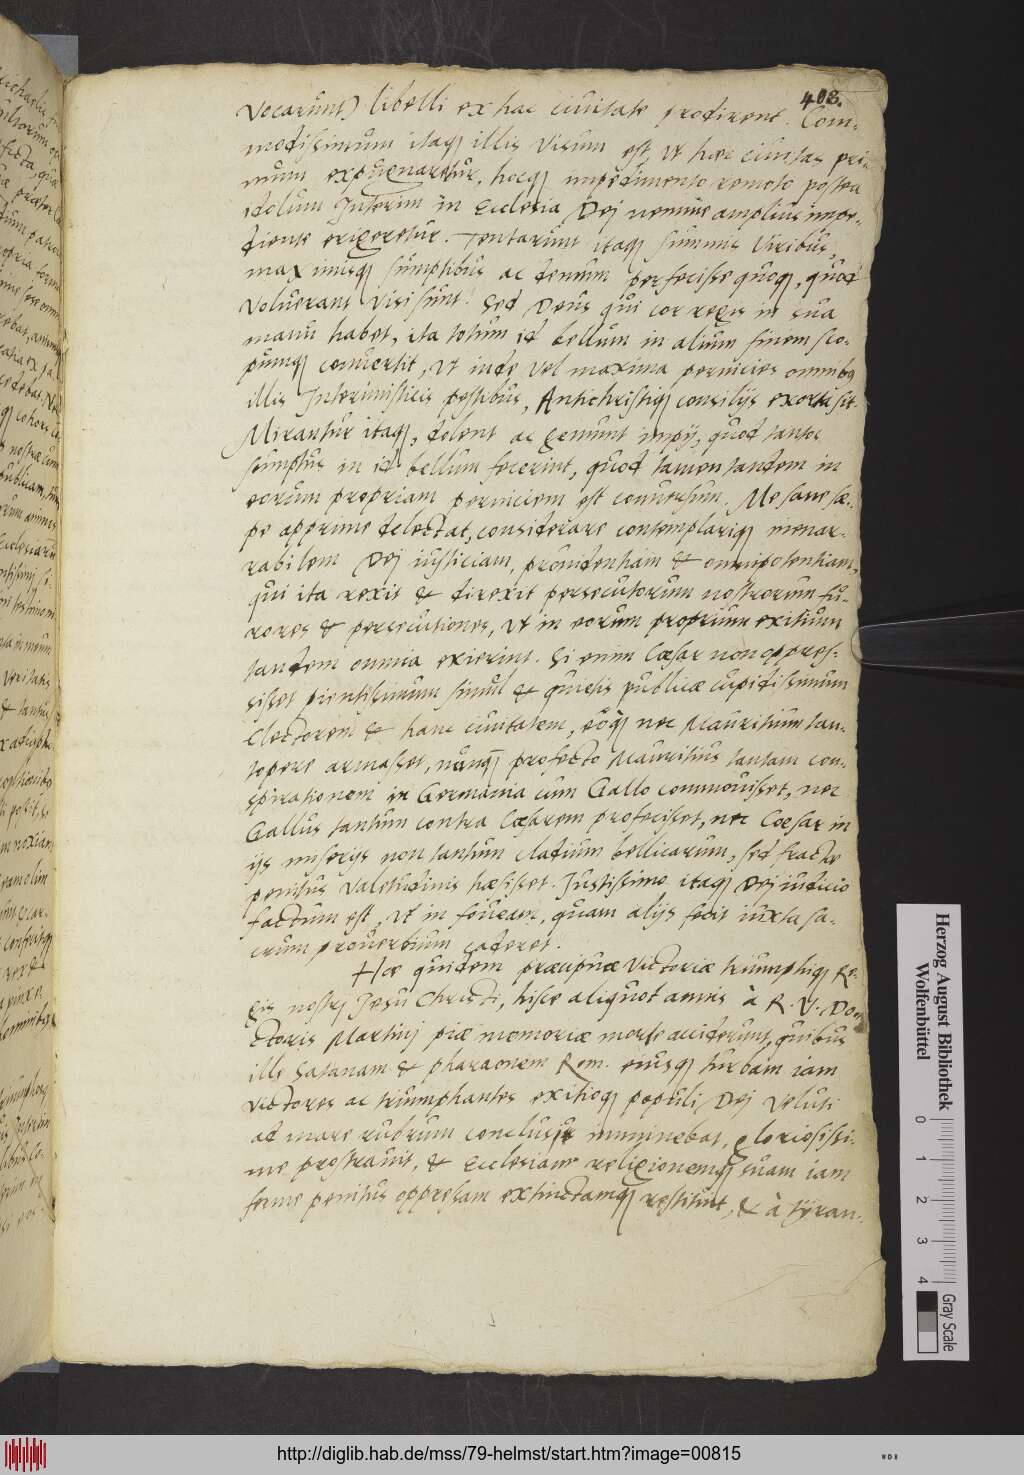 408.
Vocarunt) libelli ex hac ciuitate prodirent. Com-
modissimum itaq illis visum est, vt haec ciuitas pri-
mum expugnaretur, hocq impedimento remoto postea
idolum Interim in Ecclesia Dej nemine amplius impe-
diente erigeretur. Tentarunt itaq summis viribus,
maximisq sumptibus ac demum perfecisse quoq, quod
voluerant visi sunt. Sed Deus qui cor regis in sua
manu habet, ita totum id bellum in alium finem sco-
pumq conuertit, vt inde vel maxima pernicies omnibq
illis Interimisticis pestibus, Antichristiq consilijs exorta sit.
Mirantur itaq, dolent ac gemunt impij, quod tantos
sumptus in id bellum fecerint, quod tamen tandem in
eorum propriam perniciem est conuersum. Me sane sae-
pe apprime delectat, considerare contemplariq inenar-
rabilem Dej iusticiam, prouidentiam & omnipotentiam,
qui ita rexit & direxit persecutorum nostrorum fu-
rores & persecutiones, vt in eorum proprium exitium
tandem omnia exierint. Si enim Caesar non oppres-
sisset pientissimum simul & quietis publicae cupidissimum
Electorem & hanc ciuitatem, eoq nec Mauritium tan-
topere armasset, nunq profecto Mauritius tantam con-
spirationem in Germania cum Gallo commouisset, nec
Gallus tantum contra Caesarem profecisset, nec Caesar in
ijs miserijs non tantum cladium bellicarum, sed fractae
penitus valetudinis haesisset. Iustissimo itaq Dej iudicio
factum est, vt in foueam, quam alijs fecit iuxta sa-
crum prouerbium caderet.
Hae quidem praecipuae victoriae triumphiq Re-
gis nostrj Jesu Christi, hisce aliquot annis à R. V. Do-
ctoris Martinj piae memoriae morte acciderunt, quibus
ille Satanam & pharaonem Rom. eiusq turbam iam
victores ac triumphantes exitioq populi Dej veluti
ad mare rubrum conclusi imminebat, gloriosissi-
me prostrauit, & Ecclesiam religionemq suam iam
ferme penitus oppressam extinctamq restituit, & à tÿran-
Herzog August Bibliothek
Wolfenbüttel
0 1 2 3 4
Gray Scale
http://diglib.hab.de/mss/79-helmst/start.htm?image=00815